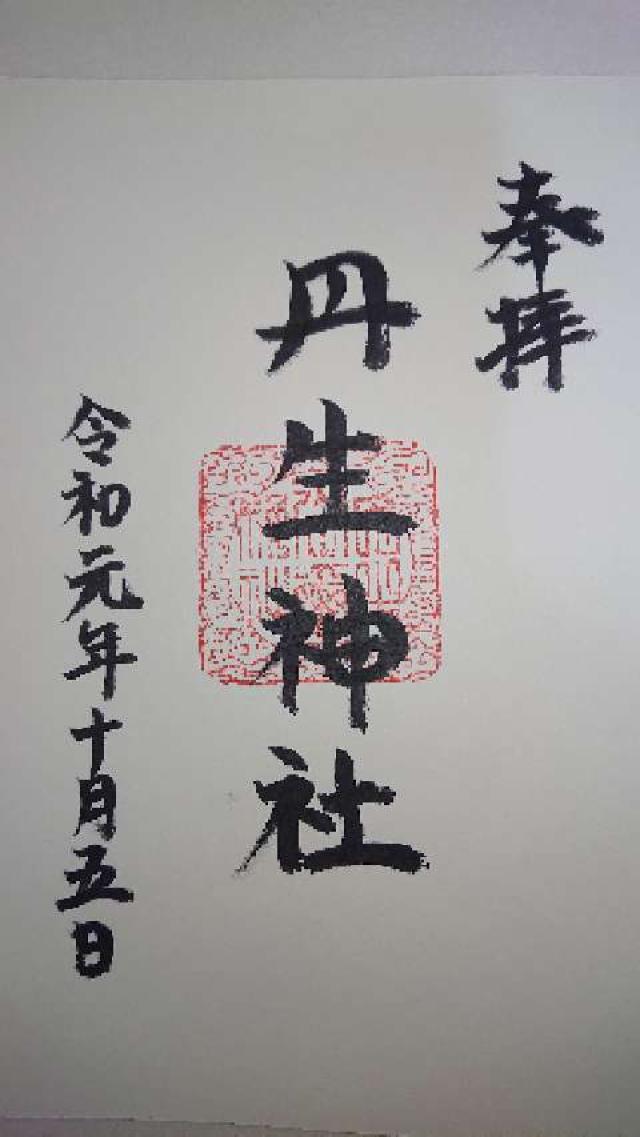 奉拝
丹生神社
令和元年十月五日